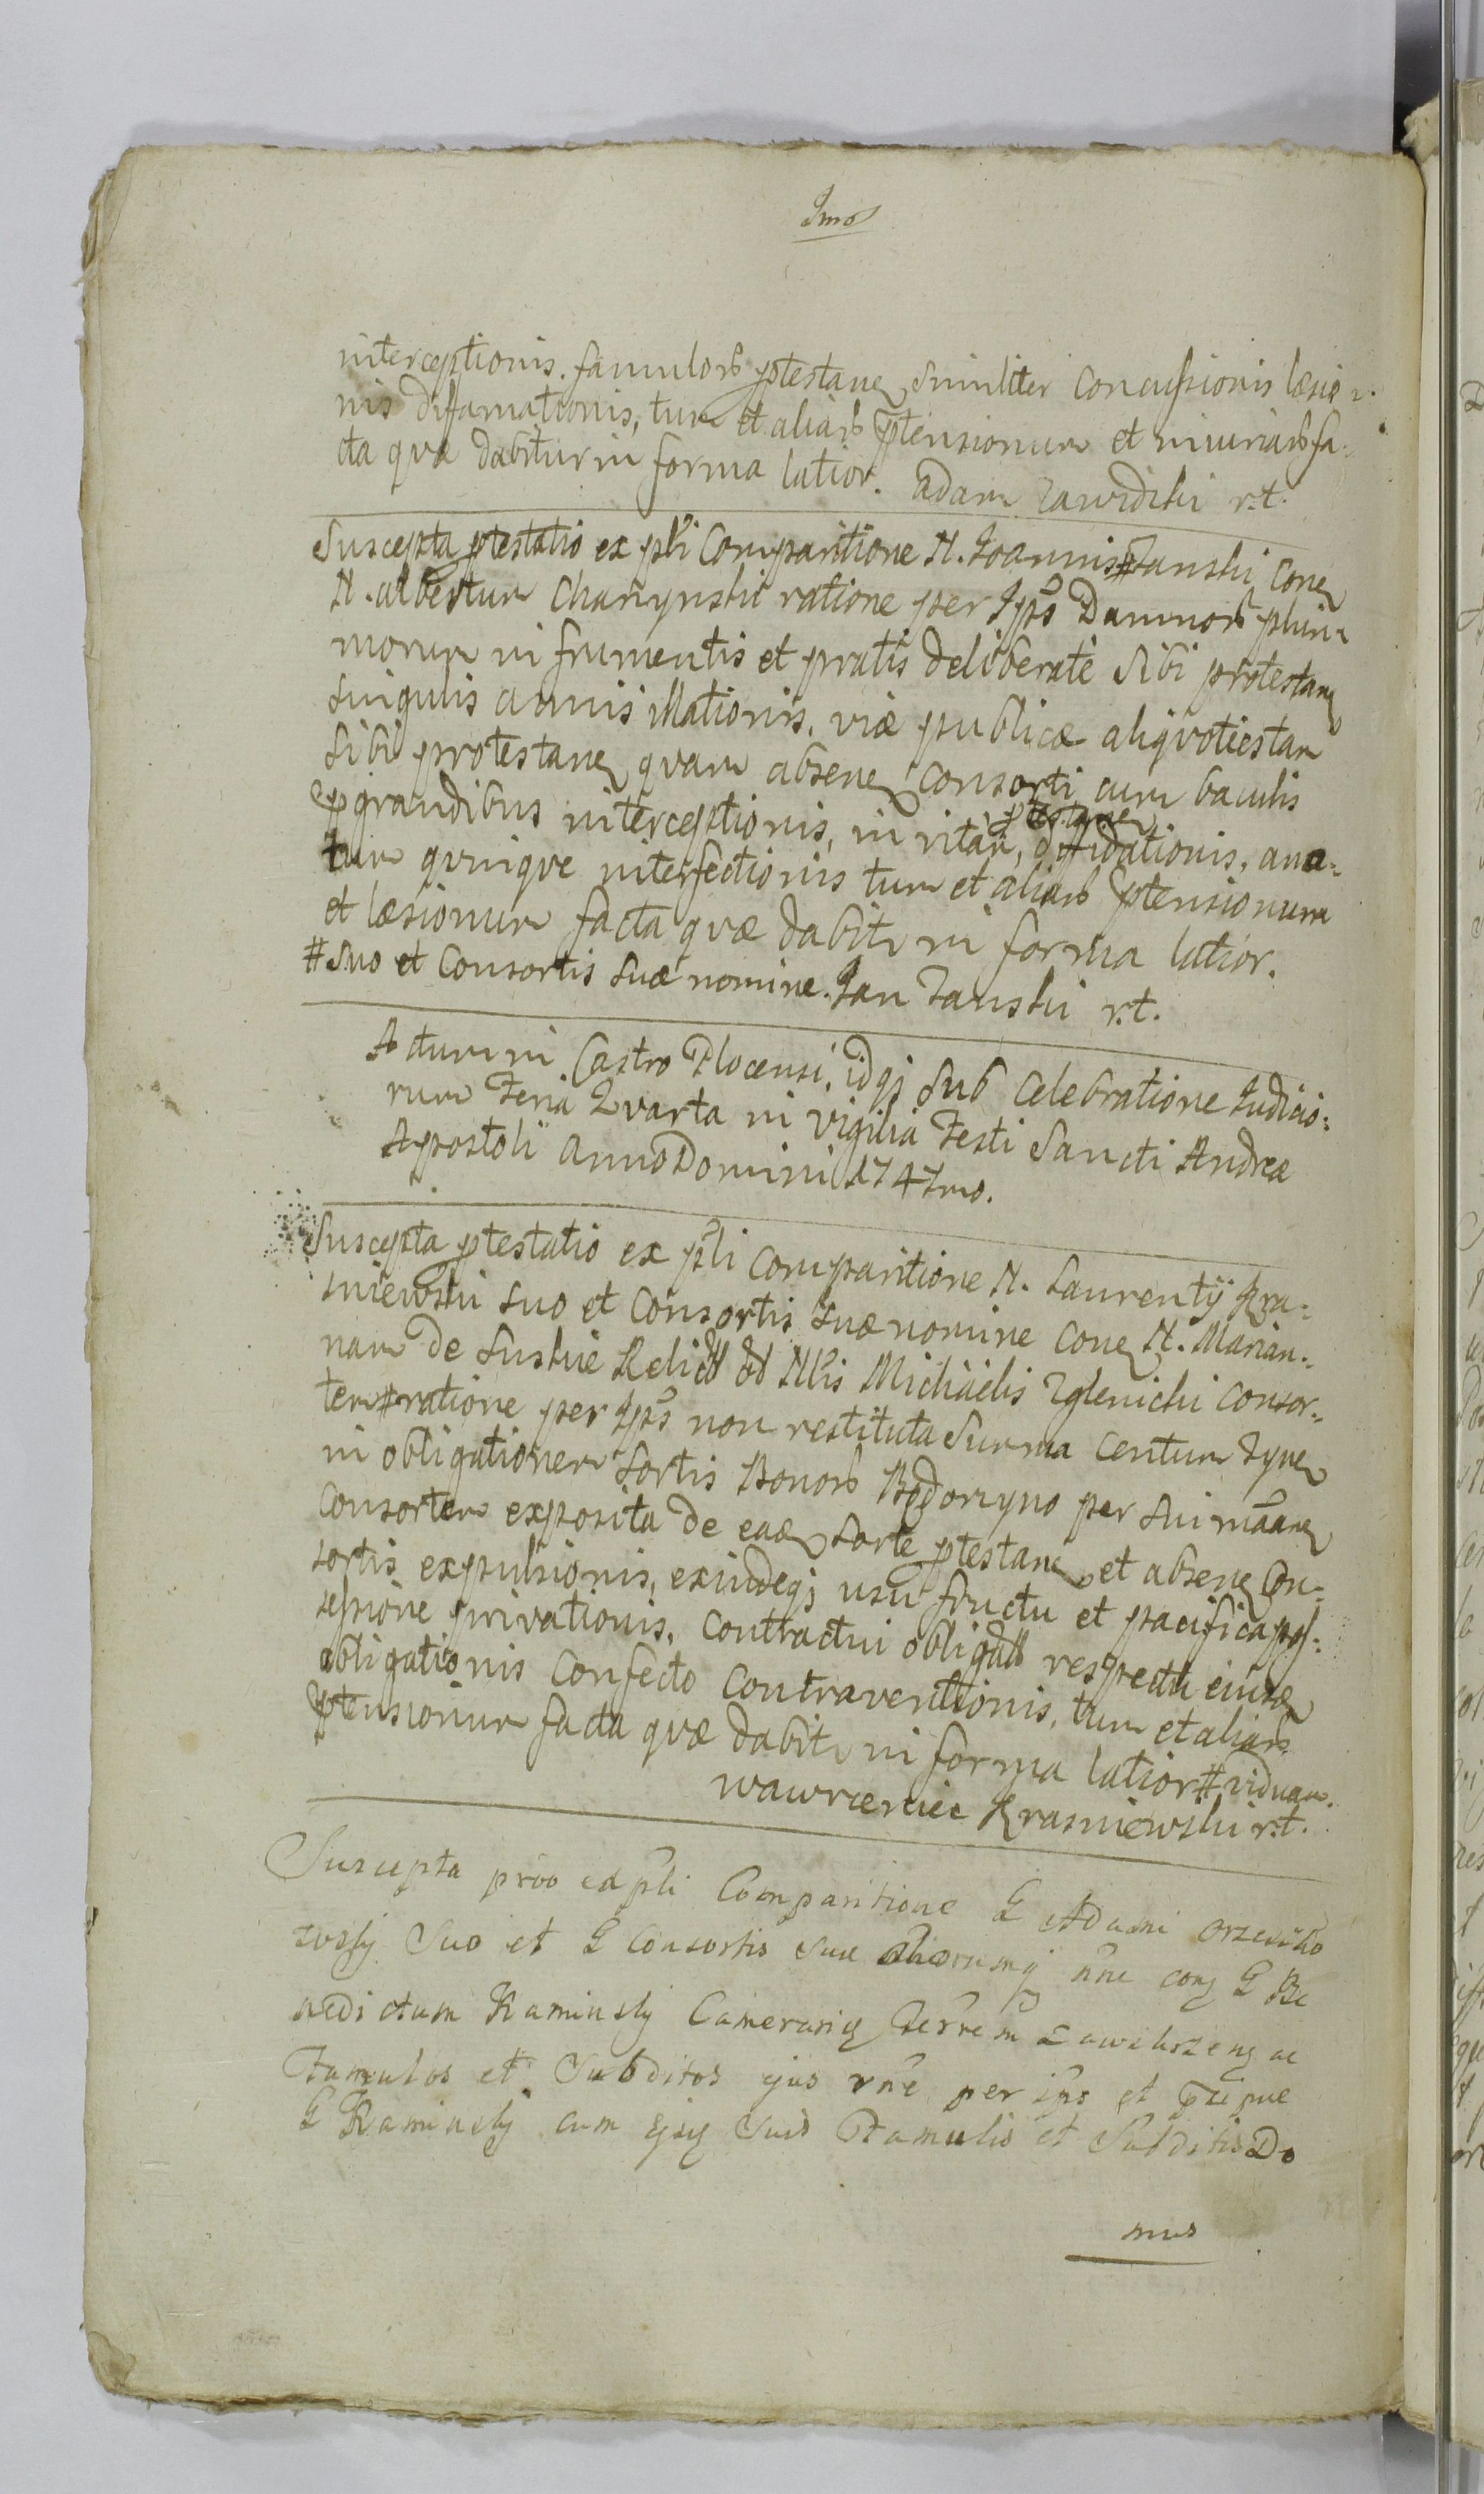 Imo
interceptionis. famulorb ptestane similiter concussionis læsio
nis difamationis, tum et aliarb ptensionum et iniuriarb fa-
cta quæ dabitur in forma latior. Adam Zawidzki r.t.
Suscepta ptestatio ex psti Comparitione N. Joannis # Janski Cone
N. Albertum Charzynski ratione per Ips Damnorb pluri
morum in frumentis et pratis deliberate sibi protestane
singulis annis illationis, viæ publicæ aliqvoties tam
sibi protestane quam absene Consorti cum baculis
pgrandibus interceptionis, in vitam, ptestane diffidationis, ana-
tum qvinqve interfectionis tum et aliarb ptensionum
et læsionum facta qvæ dabitr in forma latior.
# Suo et Consortis suæ nomine. Jan Janski r.t.
Actum in Castro Plocensi, idqj sub Celebratione Judicio:
rum Feria Qvarta in vigilia Festi Sancti Andreæ
Apostoli Anno Domini 1747mo.
Suscepta ptestatio ex psti Comparitione N. Laurentÿ Kra:
sniewski suo et Consortis suæ nomine Cone N. Marian:
nam de Suskie Relictt od Nlis Michaëlis Zglenicki Consor:
tem # ratione per Ips non restituta Summa Centum Tyne
in obligationem Sortis Bonorb Bodorzyno per sui mãane
Consortem exposita de eade sorte ptestane et absene Con:
sortis expulsionis, exindeqj usu fructu et pacifica pos:
sessione privationis, Contractui obligatt respectu eiusde
obligationis Confecto Contraventionis, tum et aliarb
ptensionum facta qvæ dabitr in forma latior # viduam.
Wawrzeniec Krasniewski r.t.
Suscepta proo ex psti Comparitione G Adami Orzeszko
wsky Suo et G Consortis Suæ aliorumq nne cong G Be
nedictum Kaminsky Camerariu Terrem Zawskrzeng ac
Famulos et Subditos ejus rne per ips et pcipue
G Kaminsky cum ejsq Suis Famulis et Subditis Do
mus